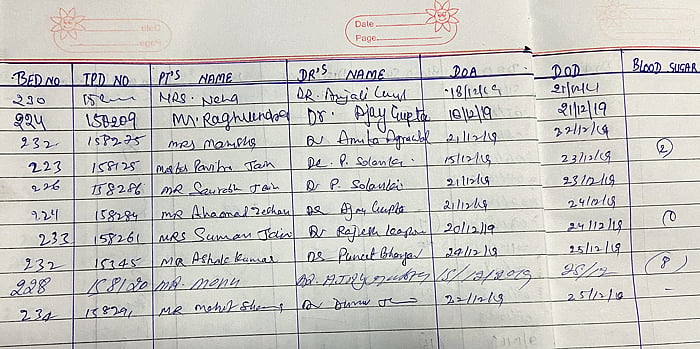 Date
Page
BED NO IPD NO PT'S NAME DR'S NAME DOA DOD BLOOD SUGAR
220 MRS. Neha DR. Anjali 18/12/19
224 158209 Mr. Raghvendra Dr. Ajay Gupta 19/12/19 21/12/19
232 158275 Mrs Manisha Dr Anita Agrawal 21/12/19 22/12/19
223 158125 Master Pavitra Jain Dr. P. Solanki 15/12/19 23/12/19 2
226 158286 MR Saurabh Jain Dr P. Solanki 21/12/19 23/12/19
224 158284 MR Ahamad Zeshan DR Ajay Gupta 21/12/19 24/12/19
233 158261 MRS Suman Jain Dr Rajesh 20/12/19 24/12/19
232 15345 MR Ashok Kumar DR Puneet 24/12/19 25/12/19 8
228 158120 MR. MONU DR. AJAY 15/12/2019 25/12
234 158291 MR Mohit Dr 22/12/19 25/12/19